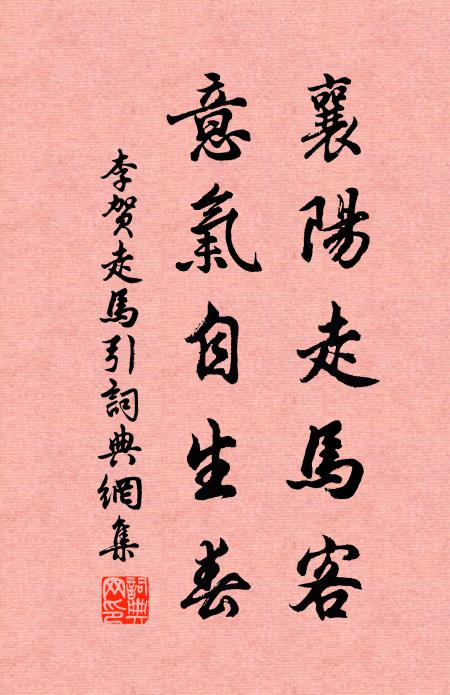 襄陽走馬客
意氣自生春
李賀走馬引詞典網集
詞典網